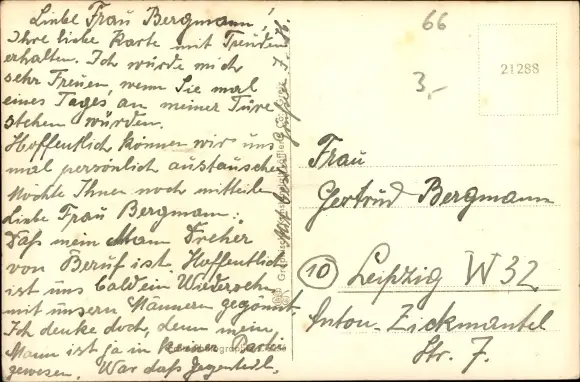 Liebe Frau Bergmann!
Ihre liebe Karte mit Freuden
erhalten. Ich würde mich
sehr Freuen, wenn Sie mal
eines Tages an meiner Türe
stehen würden.
Hoffentlich können wir uns
mal persönlich austauschen
Möchte Ihnen noch mitteilen
Liebe Frau Bergmann:
Daß mein Mann Dreher
von Beruf ist. Hoffentlich
ist uns bald ein Wiedersehn
mit unsern Männern gegönnt.
Ich denke doch, denn mein
Mann ist ja in keiner Partei
gewesen. War daß Gegenteil.
66
3,-
21288
Frau
Gertrud Bergmann
10 Leipzig W 32
Anton-Zickmantel
Str. 7.